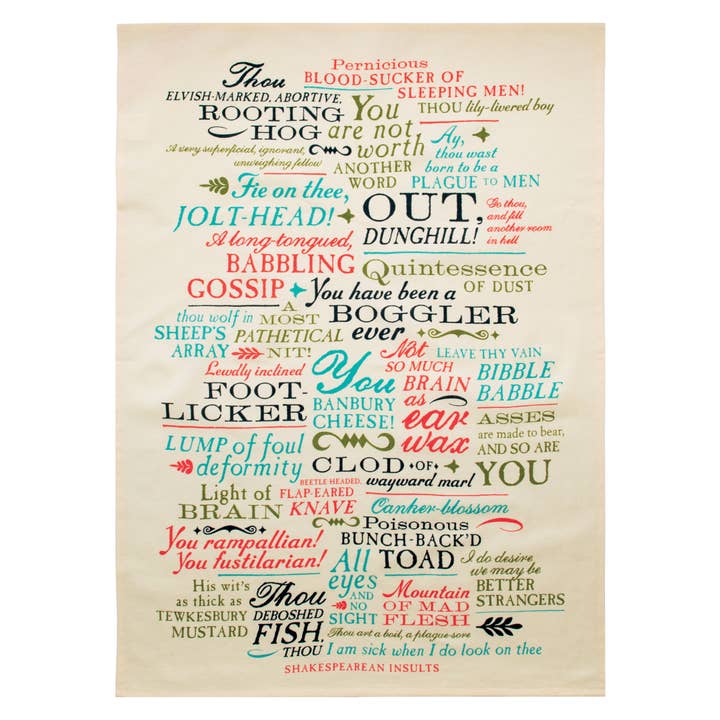 Thou
ELVISH-MARKED, ABORTIVE,
ROOTING
HOG
Pernicious
BLOOD-SUCKER OF
SLEEPING MEN!
You
are not
worth
ANOTHER
WORD
THOU lily-livered boy
A very superficial, ignorant,
unweighing fellow
Ay,
thou wast
born to be a
PLAGUE TO MEN
Fie on thee,
JOLT-HEAD!
OUT,
DUNGHILL!
Go thou,
and fill
another room
in hell
A long-tongued,
BABBLING
GOSSIP
Quintessence
OF DUST
You have been a
BOGGLER
ever
thou wolf in
SHEEP'S
ARRAY
A
MOST
PATHETICAL
NIT!
Lewdly inclined
FOOT-
LICKER
You
BANBURY
CHEESE!
Not
SO MUCH
BRAIN
as
ear
wax
LEAVE THY VAIN
BIBBLE
BABBLE
ASSES
are made to bear,
AND SO ARE
YOU
LUMP of foul
deformity
CLOD OF
wayward marl
Light of
BRAIN
BEETLE-HEADED,
FLAP-EARED
KNAVE
Canker-blossom
You rampallian!
You fustilarian!
Poisonous
BUNCH-BACK'D
TOAD
All
eyes
AND
NO
SIGHT
I do desire
we may be
BETTER
STRANGERS
His wit's
as thick as
TEWKESBURY
MUSTARD
Thou
DEBOSHED
FISH,
THOU
Mountain
OF MAD
FLESH
Thou art a boil, a plague-sore
I am sick when I do look on thee
SHAKESPEAREAN INSULTS